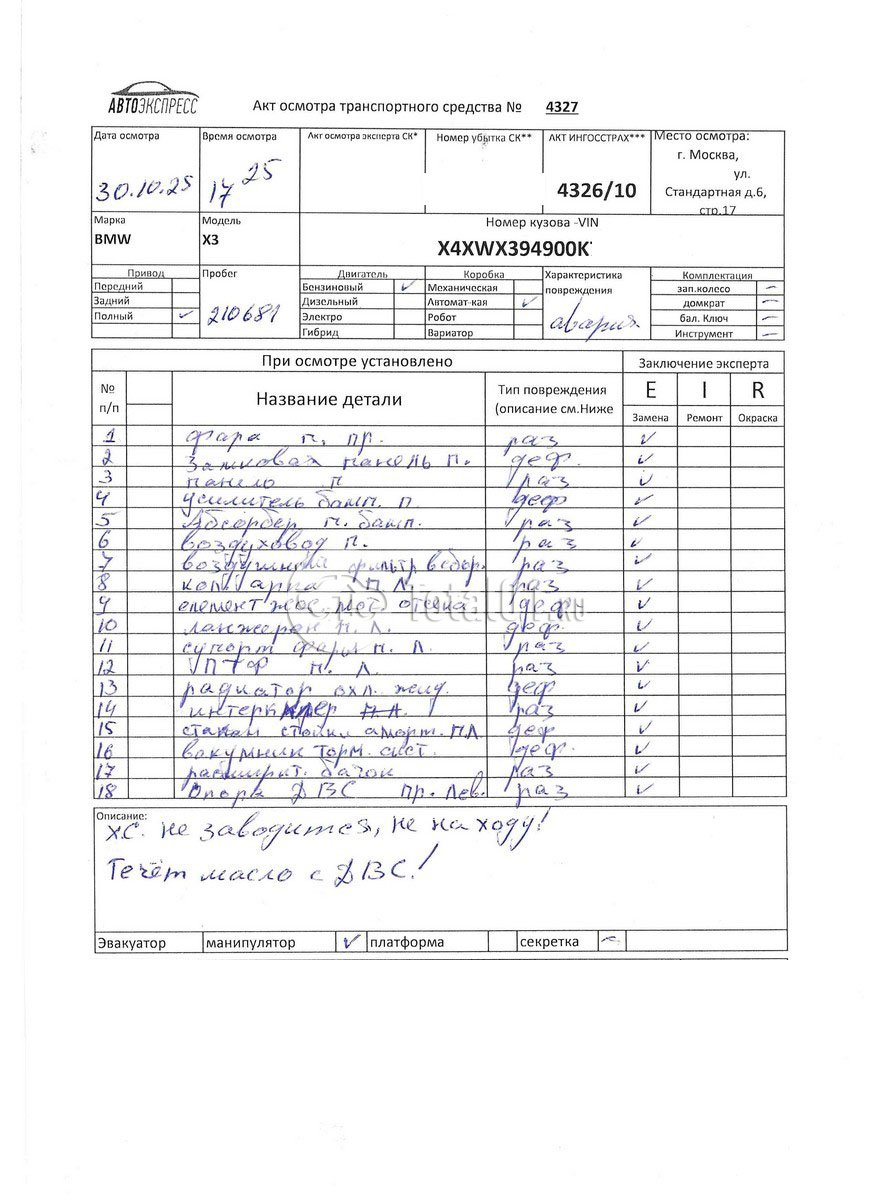 АВТОЭКСПРЕСС
Акт осмотра транспортного средства № 4327
Дата осмотра Время осмотра Акт осмотра эксперта СК* Номер убытка СК** АКТ ИНГОССТРАХ*** Место осмотра:
30.10.25 17 25 4326/10 г. Москва,
ул.
Стандартная д.6,
стр.17
Марка Модель Номер кузова -VIN
BMW X3 X4XWX394900K
Привод Пробег Двигатель Коробка Характеристика повреждения Комплектация
Передний Бензиновый ✓ Механическая зап.колесо –
Задний Дизельный Автомат-кая ✓ домкрат –
Полный ✓ 210681 Электро Робот авария бал. Ключ –
Гибрид Вариатор Инструмент –
При осмотре установлено Заключение эксперта
№ п/п Название детали Тип повреждения (описание см.Ниже E I R
Замена Ремонт Окраска
1 фара п. пр. раз ✓
2 Замковая панель п. деф. ✓
3 панель п раз ✓
4 усилитель бамп. п. деф ✓
5 Абсорбер п. бамп. раз ✓
6 воздуховод п. раз ✓
7 воздушный фильтр в сбор. раз ✓
8 п л раз ✓
9 елемент мот. отсека деф. ✓
10 ланжерон п. л. деф. ✓
11 супорт фары п. л. раз ✓
12 ПТФ п. л. раз ✓
13 радиатор охл. жид. деф ✓
14 интеркулер раз ✓
15 стакан стойки аморт. п л деф ✓
16 вакумник торм. сист. деф. ✓
17 расширит. бачок раз ✓
18 Опора ДВС пр. лев. раз ✓
TotalCAR.RU
Описание:
Х.С. не заводится, не на ходу!
Течёт масло с ДВС!
Эвакуатор манипулятор ✓ платформа секретка –